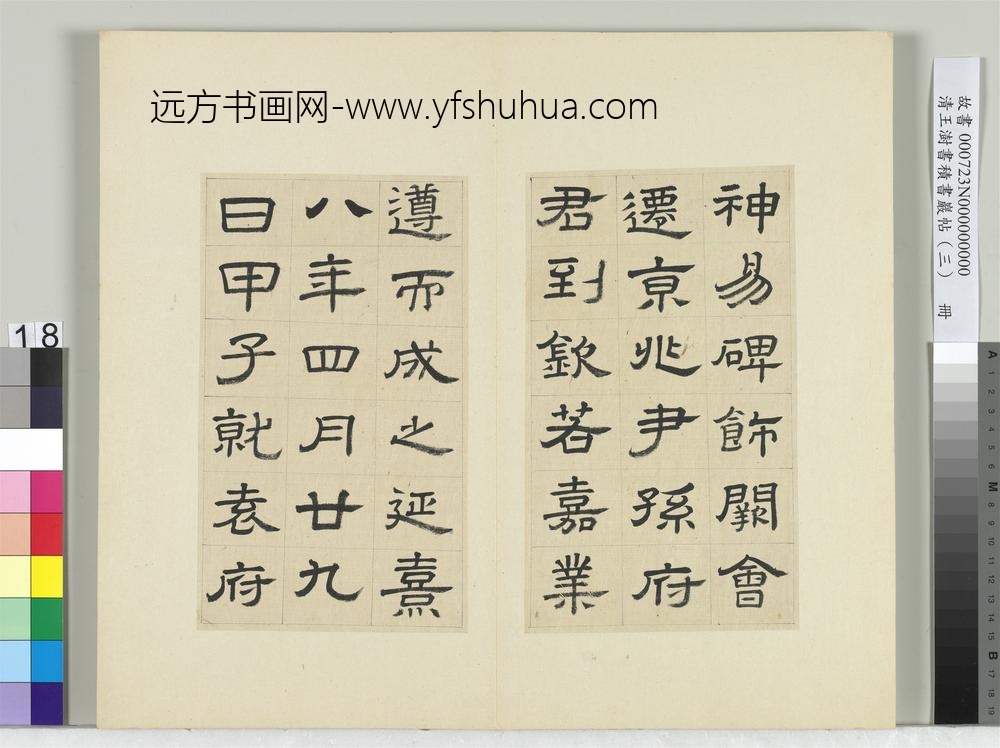 远方书画网-www.yfshuhua.com
神易碑飾闕會
遷京兆尹孫府
君到欽若嘉業
遵而成之延熹
八年四月廿九
日甲子就袁府
故書 000723N000000000
清王澍書積書巖帖（三） 冊
18
A 1 2 3 4 5 6 M 8 9 10 11 12 13 14 15 B 17 18 19